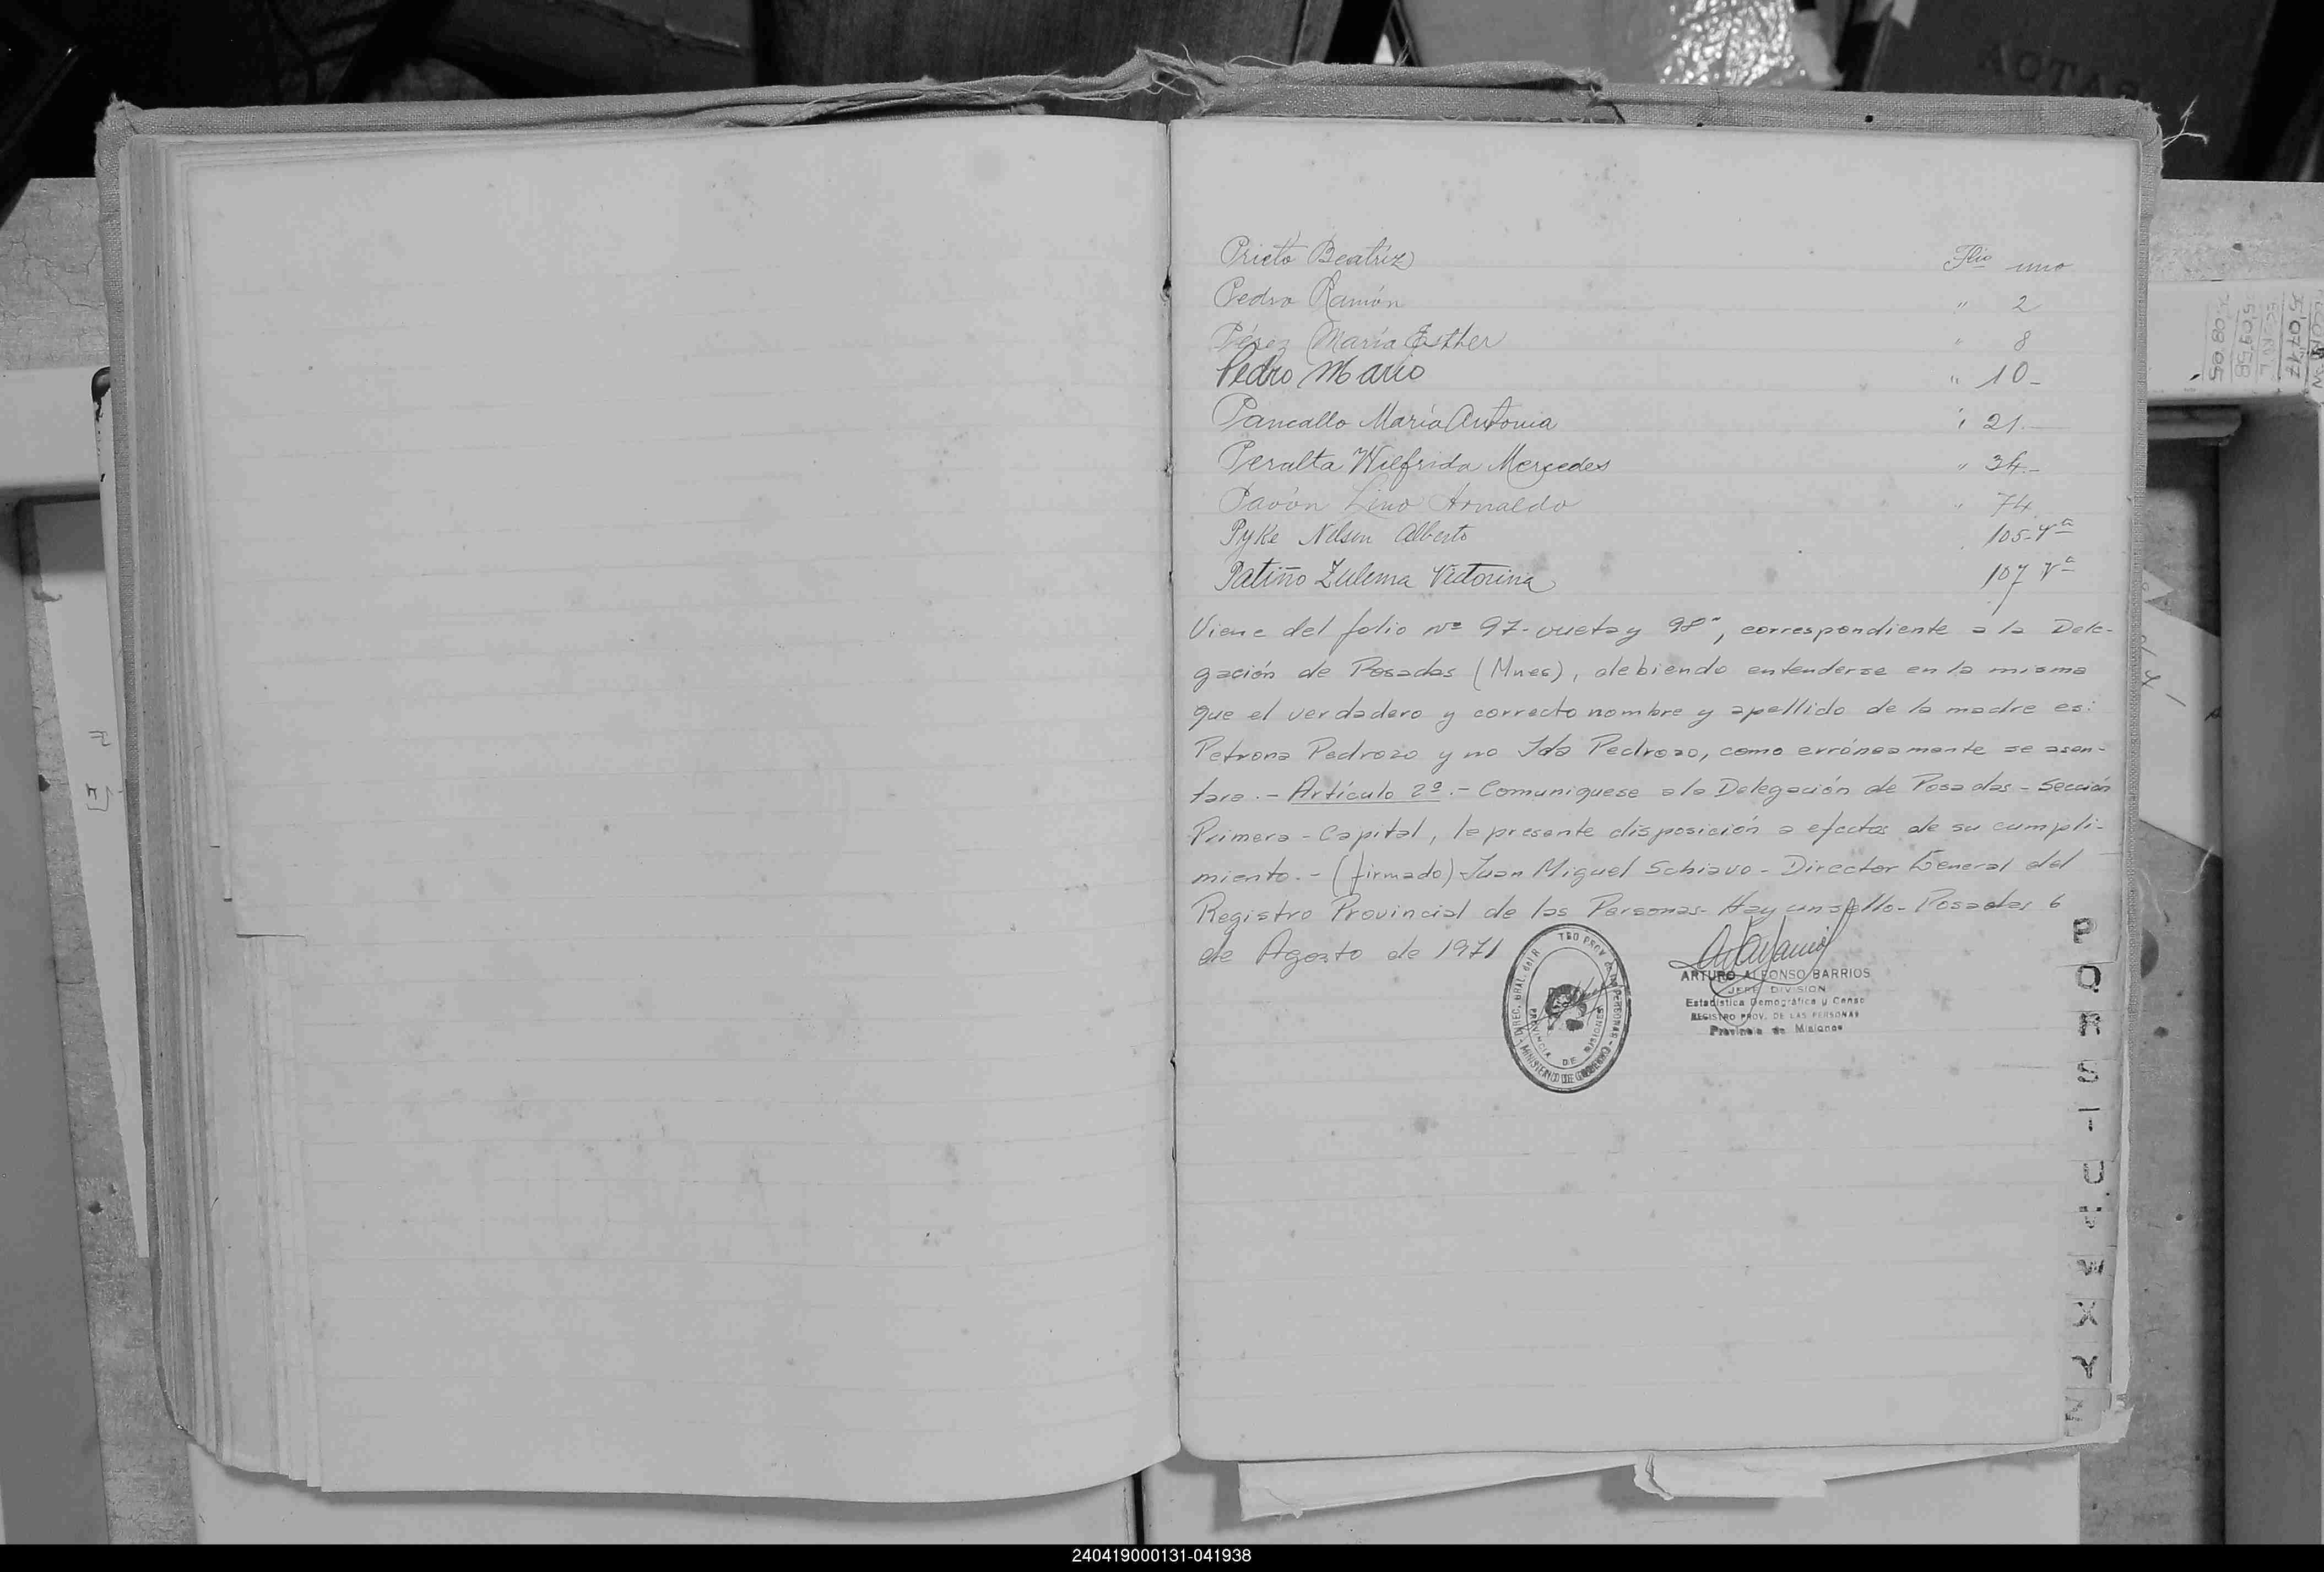 Prieto Beatríz Flio uno
Pedro Ramón " 2
Pérez María Esther " 8
Pedro Mario " 10-
Pancallo María Antonia " 21.-
Peralta Wilfrida Mercedes " 34.-
Pavón Lino Arnaldo " 74
Pyke Nelson Alberto 105-Vª
Patiño Zulema Victorina 107 Vª
Viene del folio nº 97-vuelta y 98", correspondiente a la Dele-
gación de Posadas (Mnes), debiendo entenderse en la misma
que el verdadero y correcto nombre y apellido de la madre es:
Petrona Pedrozo y no Ida Pedrozo, como erróneamente se asen-
tara.- Artículo 2º.- Comuniquese a la Delegación de Posadas - Sección
Primera - Capital, la presente disposición a efectos de su cumpli-
miento.- (firmado) Juan Miguel Schiavo - Director General del
Registro Provincial de las Personas- Hay un sello- Posadas 6
de Agosto de 1971
ARTURO ALFONSO BARRIOS
JEFE DIVISION
Estadística Demográfica y Censo
REGISTRO PROV. DE LAS PERSONAS
Provincia de Misiones
PROVINCIA DE MISIONES
MINISTERIO DE GOBIERNO
P
Q
R
S
T
U
V
W
X
Y
Z
240419000131-041938